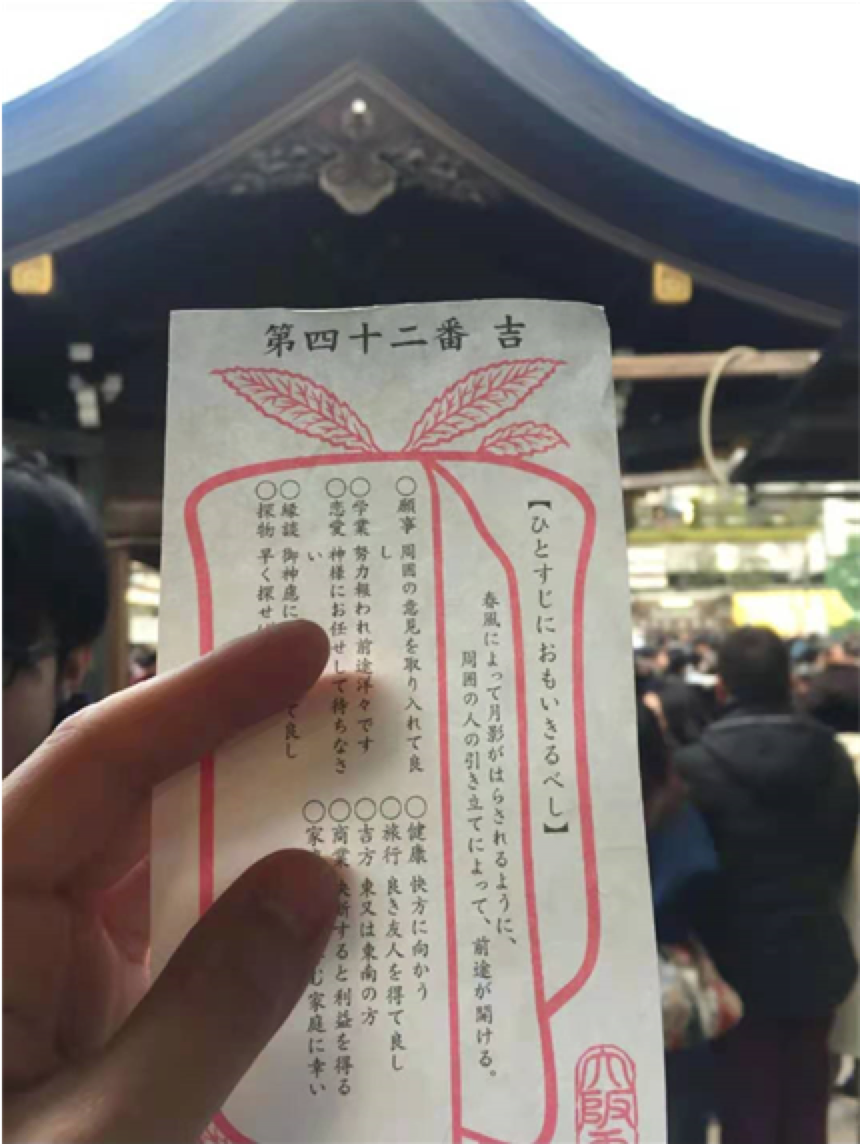 第四十二番 吉
【ひとすじにおもいきるべし】
春風によって月影がはらされるように、
周囲の人の引き立てによって、前途が開ける。
○願事 周囲の意見を取り入れて良
し
○学業 努力報われ前途洋々です
○恋愛 神様にお任せして待ちなさ
い
○縁談 御神慮に
て良し
○探物 早く探せ
○健康 快方に向かう
○旅行 良き友人を得て良し
○吉方 東又は東南の方
○商業 決断すると利益を得る
○家
む家庭に幸い
大阪